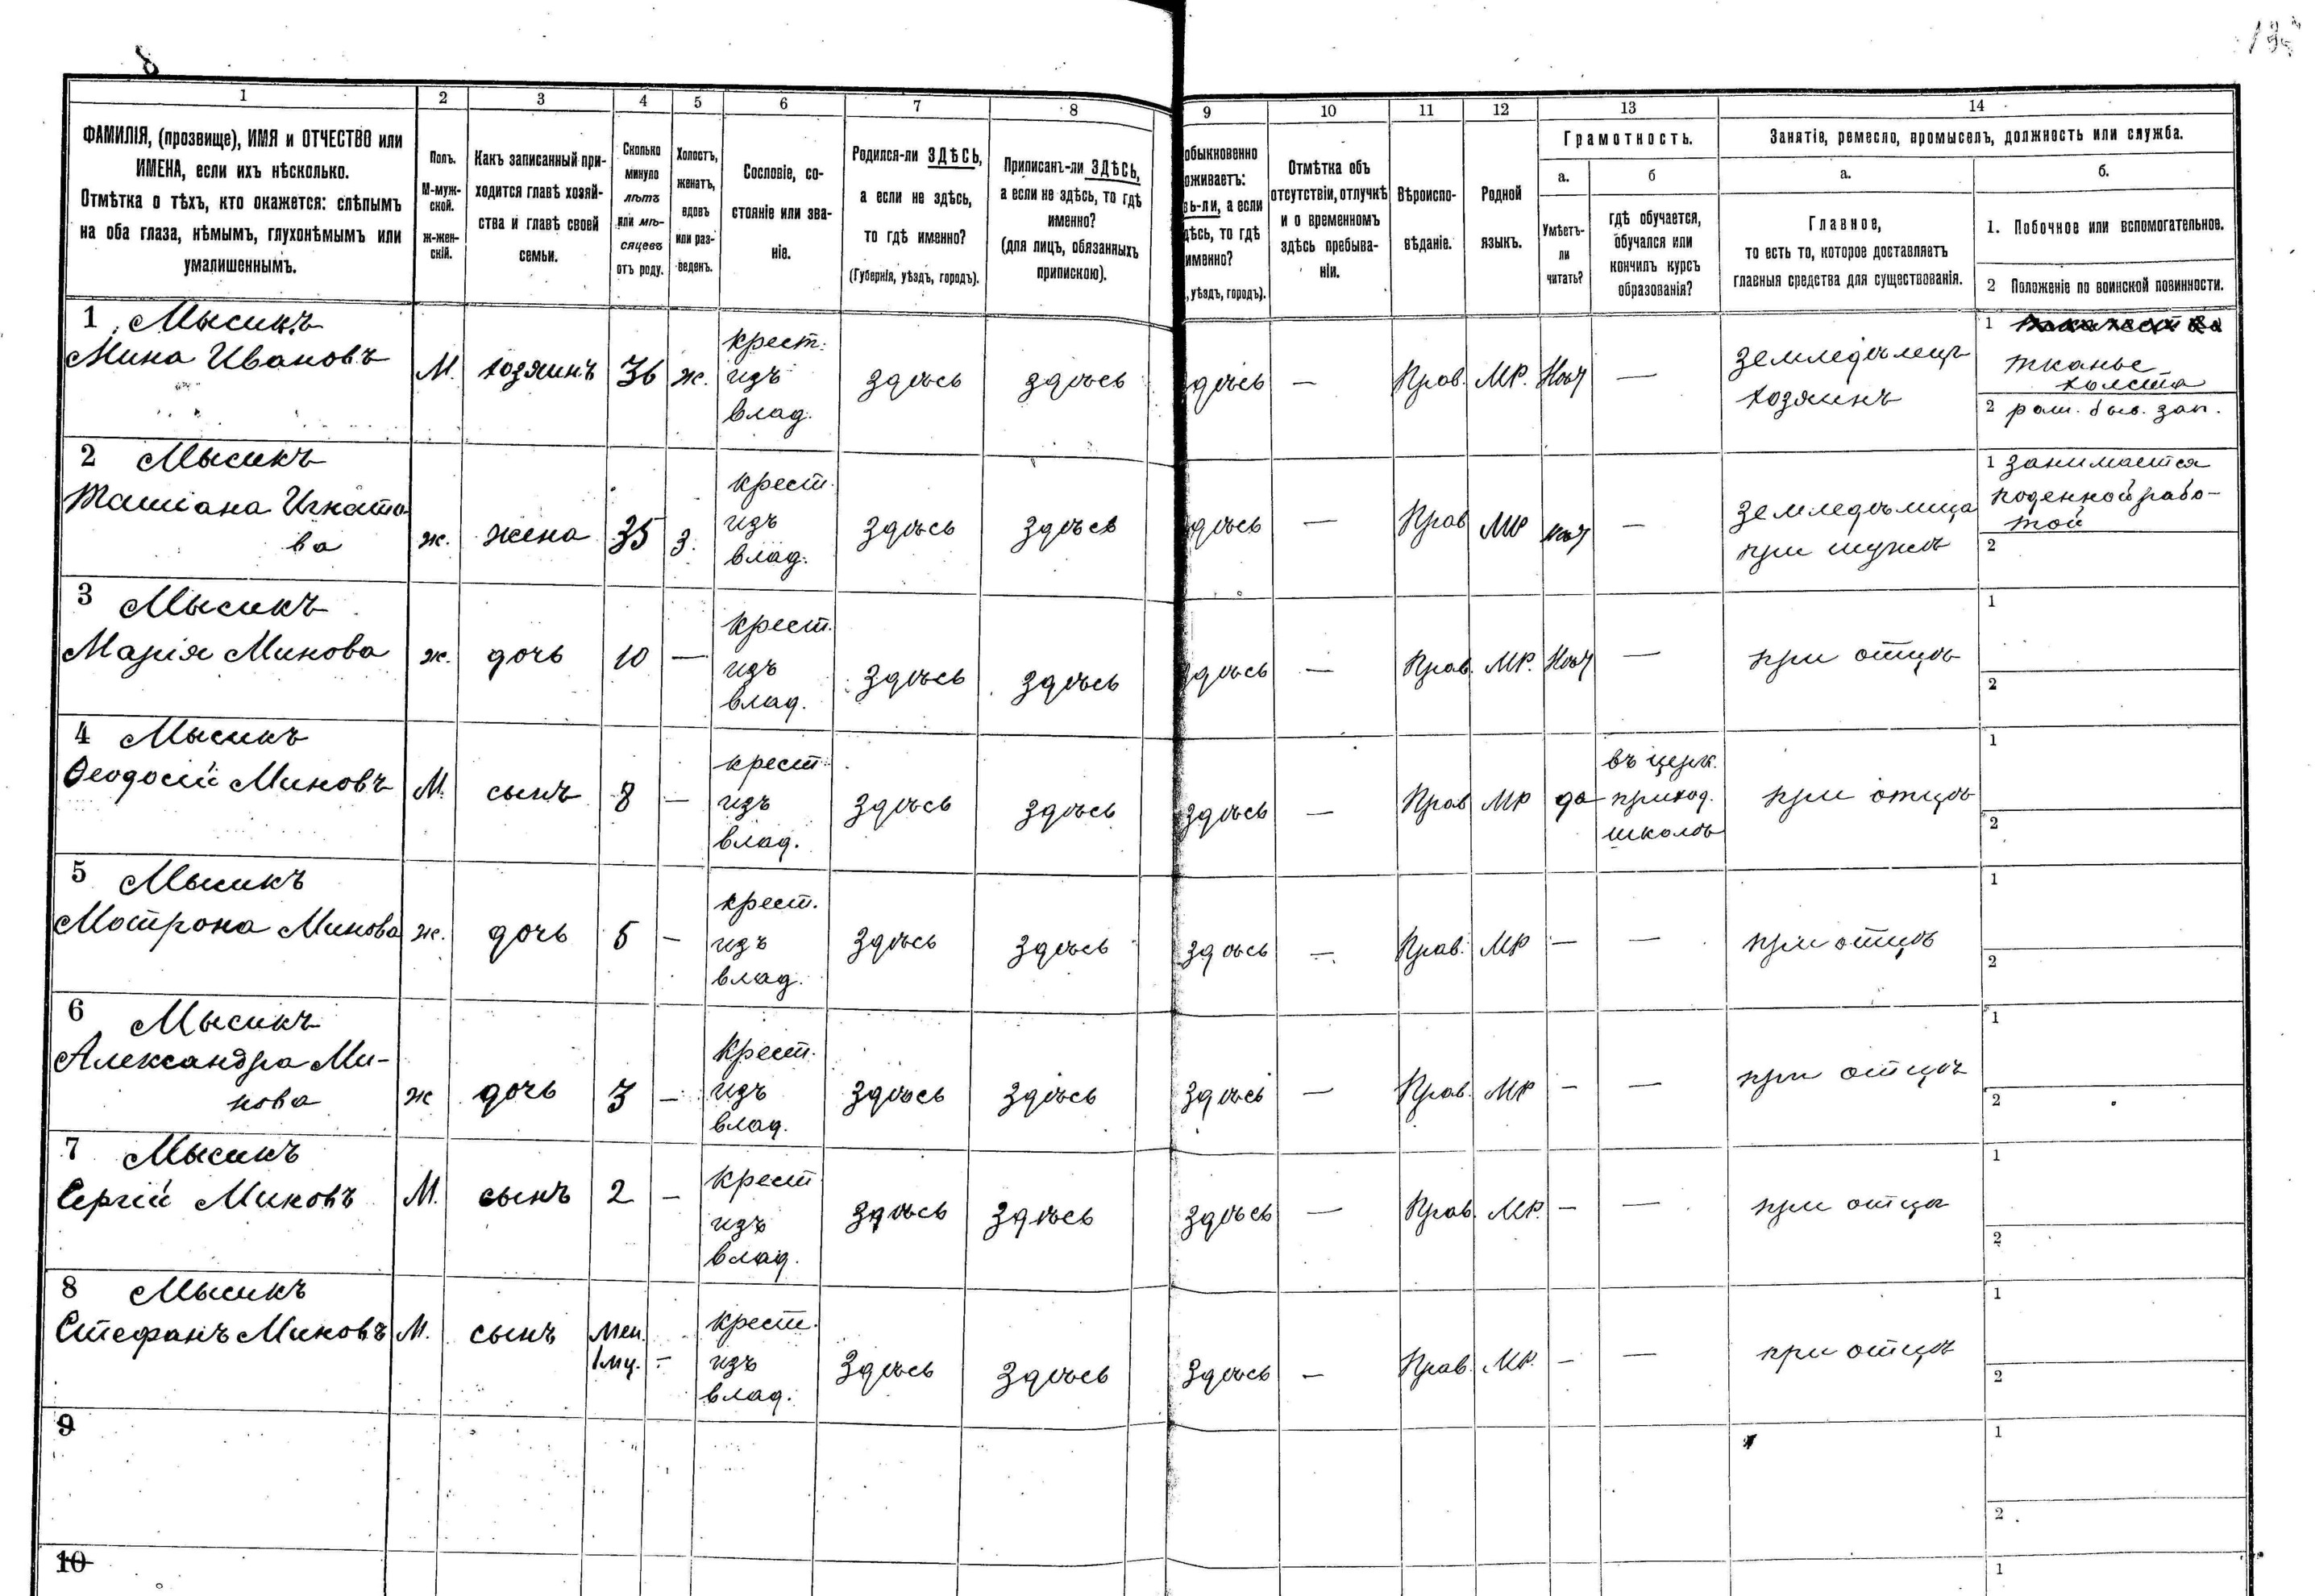 8
1 2 3 4 5 6 7 8 9 10 11 12 13 14
ФАМИЛІЯ, (прозвище), ИМЯ и ОТЧЕСТВО или
ИМЕНА, если ихъ нѣсколько.
Отмѣтка о тѣхъ, кто окажется: слѣпымъ
на оба глаза, нѣмымъ, глухонѣмымъ или
умалишеннымъ.
Полъ.
М-муж-
ской.
ж-жен-
скій.
Какъ записанный при-
ходится главѣ хозяй-
ства и главѣ своей
семьи.
Сколько
минуло
лѣтъ
или мѣ-
сяцевъ
отъ роду.
Холостъ,
женатъ,
вдовъ
или раз-
веденъ.
Сословіе, со-
стояніе или зва-
ніе.
Родился-ли ЗДѢСЬ,
а если не здѣсь,
то гдѣ именно?
(Губернія, уѣздъ, городъ).
Приписанъ-ли ЗДѢСЬ,
а если не здѣсь, то гдѣ
именно?
(для лицъ, обязанныхъ
припискою).
обыкновенно
оживаетъ:
сь-ли, а если
дѣсь, то гдѣ
именно?
, уѣздъ, городъ).
Отмѣтка объ
отсутствіи, отлучкѣ
и о временномъ
здѣсь пребыва-
ніи.
Вѣроиспо-
вѣданіе.
Родной
языкъ.
Грамотность.
а.
Умѣетъ-
ли
читать?
б
гдѣ обучается,
обучался или
кончилъ курсъ
образованія?
Занятіе, ремесло, промыселъ, должность или служба.
а.
Главное,
то есть то, которое доставляетъ
главныя средства для существованія.
б.
1. Побочное или вспомогательное.
2 Положеніе по воинской повинности.
1 Мысикъ
Мина Ивановъ
М.
хозяинъ
36
ж.
крест.
изъ
влад.
здѣсь
здѣсь
здѣсь
—
Прав.
МР.
Нѣт
—
земледѣлецъ
хозяинъ
1
тканье
холста
2 рат. быв. зап.
2 Мысикъ
Татіана Игнато
ва
ж.
жена
35
з.
крест.
изъ
влад.
здѣсь
здѣсь
здѣсь
—
Прав
МР
нѣт
—
земледѣлица
при мужѣ
1 занимается
поденной рабо-
той
2
3 Мысикъ
Марія Минова
ж.
дочь
10
—
крест.
изъ
влад.
здѣсь
здѣсь
здѣсь
—
Прав.
МР.
Нѣт
—
при отцѣ
1
2
4 Мысикъ
Ѳеодосій Миновъ
М.
сынъ
8
—
крест.
изъ
влад.
здѣсь
здѣсь
здѣсь
—
Прав
МР
да
въ церк.
приход.
школѣ
при отцѣ
1
2
5 Мысикъ
Мотрона Минова
ж.
дочь
5
—
крест.
изъ
влад.
здѣсь
здѣсь
здѣсь
—
Прав.
МР
—
—
при отцѣ
1
2
6 Мысикъ
Александра Ми-
нова
ж
дочь
3
—
Крест.
изъ
влад.
здѣсь
здѣсь
здѣсь
—
Прав.
МР
—
—
при отцѣ
1
2
7 Мысикъ
Сергій Миновъ
М.
сынъ
2
—
крест
изъ
влад.
здѣсь
здѣсь
здѣсь
—
Прав.
МР.
—
—
при отцѣ
1
2
8 Мысикъ
Стефанъ Миновъ
М.
сынъ
мен.
1 мц.
—
крест.
изъ
влад.
здѣсь
здѣсь
здѣсь
—
Прав.
МР.
—
—
при отцѣ
1
2
9
1
2
10
1